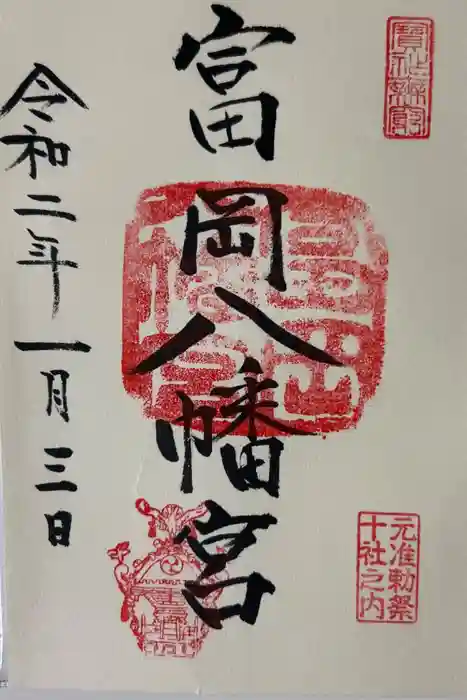 富岡八幡宮
令和二年一月三日
元准勅祭
十社之内